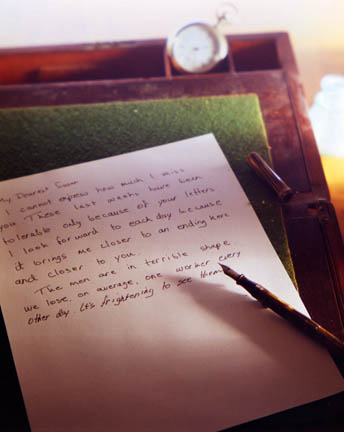 My Dearest Susan
I cannot express how much I miss
you. These last weeks have been
tolerable only because of your letters
I look forward to each day because
it brings me closer to an ending here
and closer to you.
The men are in terrible shape.
we lose, on average, one worker every
other day. It's frightening to see them